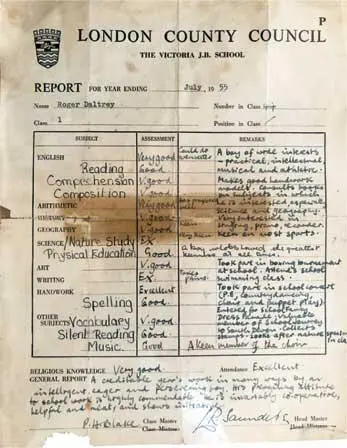 P
LONDON COUNTY COUNCIL
THE VICTORIA J.B. SCHOOL
REPORT FOR YEAR ENDING July, 1955
Name Roger Daltrey Number in Class
Class 1 Position in Class
SUBJECT ASSESSMENT REMARKS
ENGLISH Very good A boy of wide interests
Reading Good - practical, intellectual,
musical and athletic.
Comprehension V. good Makes good handwork
models. Consults books
Composition V. good for subjects in which
ARITHMETIC Very good he is interested especially
HISTORY V. good science and geography.
GEOGRAPHY V. good Very interested in
SCIENCE/Nature Study EX keen on most sports.
Physical Education Good A boy keenness
at all times.
ART V. good Took part in boxing tournament
WRITING EX at school. Attends school
swimming class.
HANDWORK Excellent Took part in school concert
Spelling Good. (P.E, country dancing,
choir and puppet play).
OTHER SUBJECTS Vocabulary V. good
Silent Reading Good.
Music. Good A keen member of the choir
RELIGIOUS KNOWLEDGE Very good. Attendance Excellent
GENERAL REPORT A creditable year's work in many ways by an
intelligent, eager and persevering boy. His attitude
to school work is highly commendable. He is invariably co-operative,
helpful and neat, and shows initiative.
P.H. Blake Class Master Saunders Head Master
Class Mistress Head Mistress